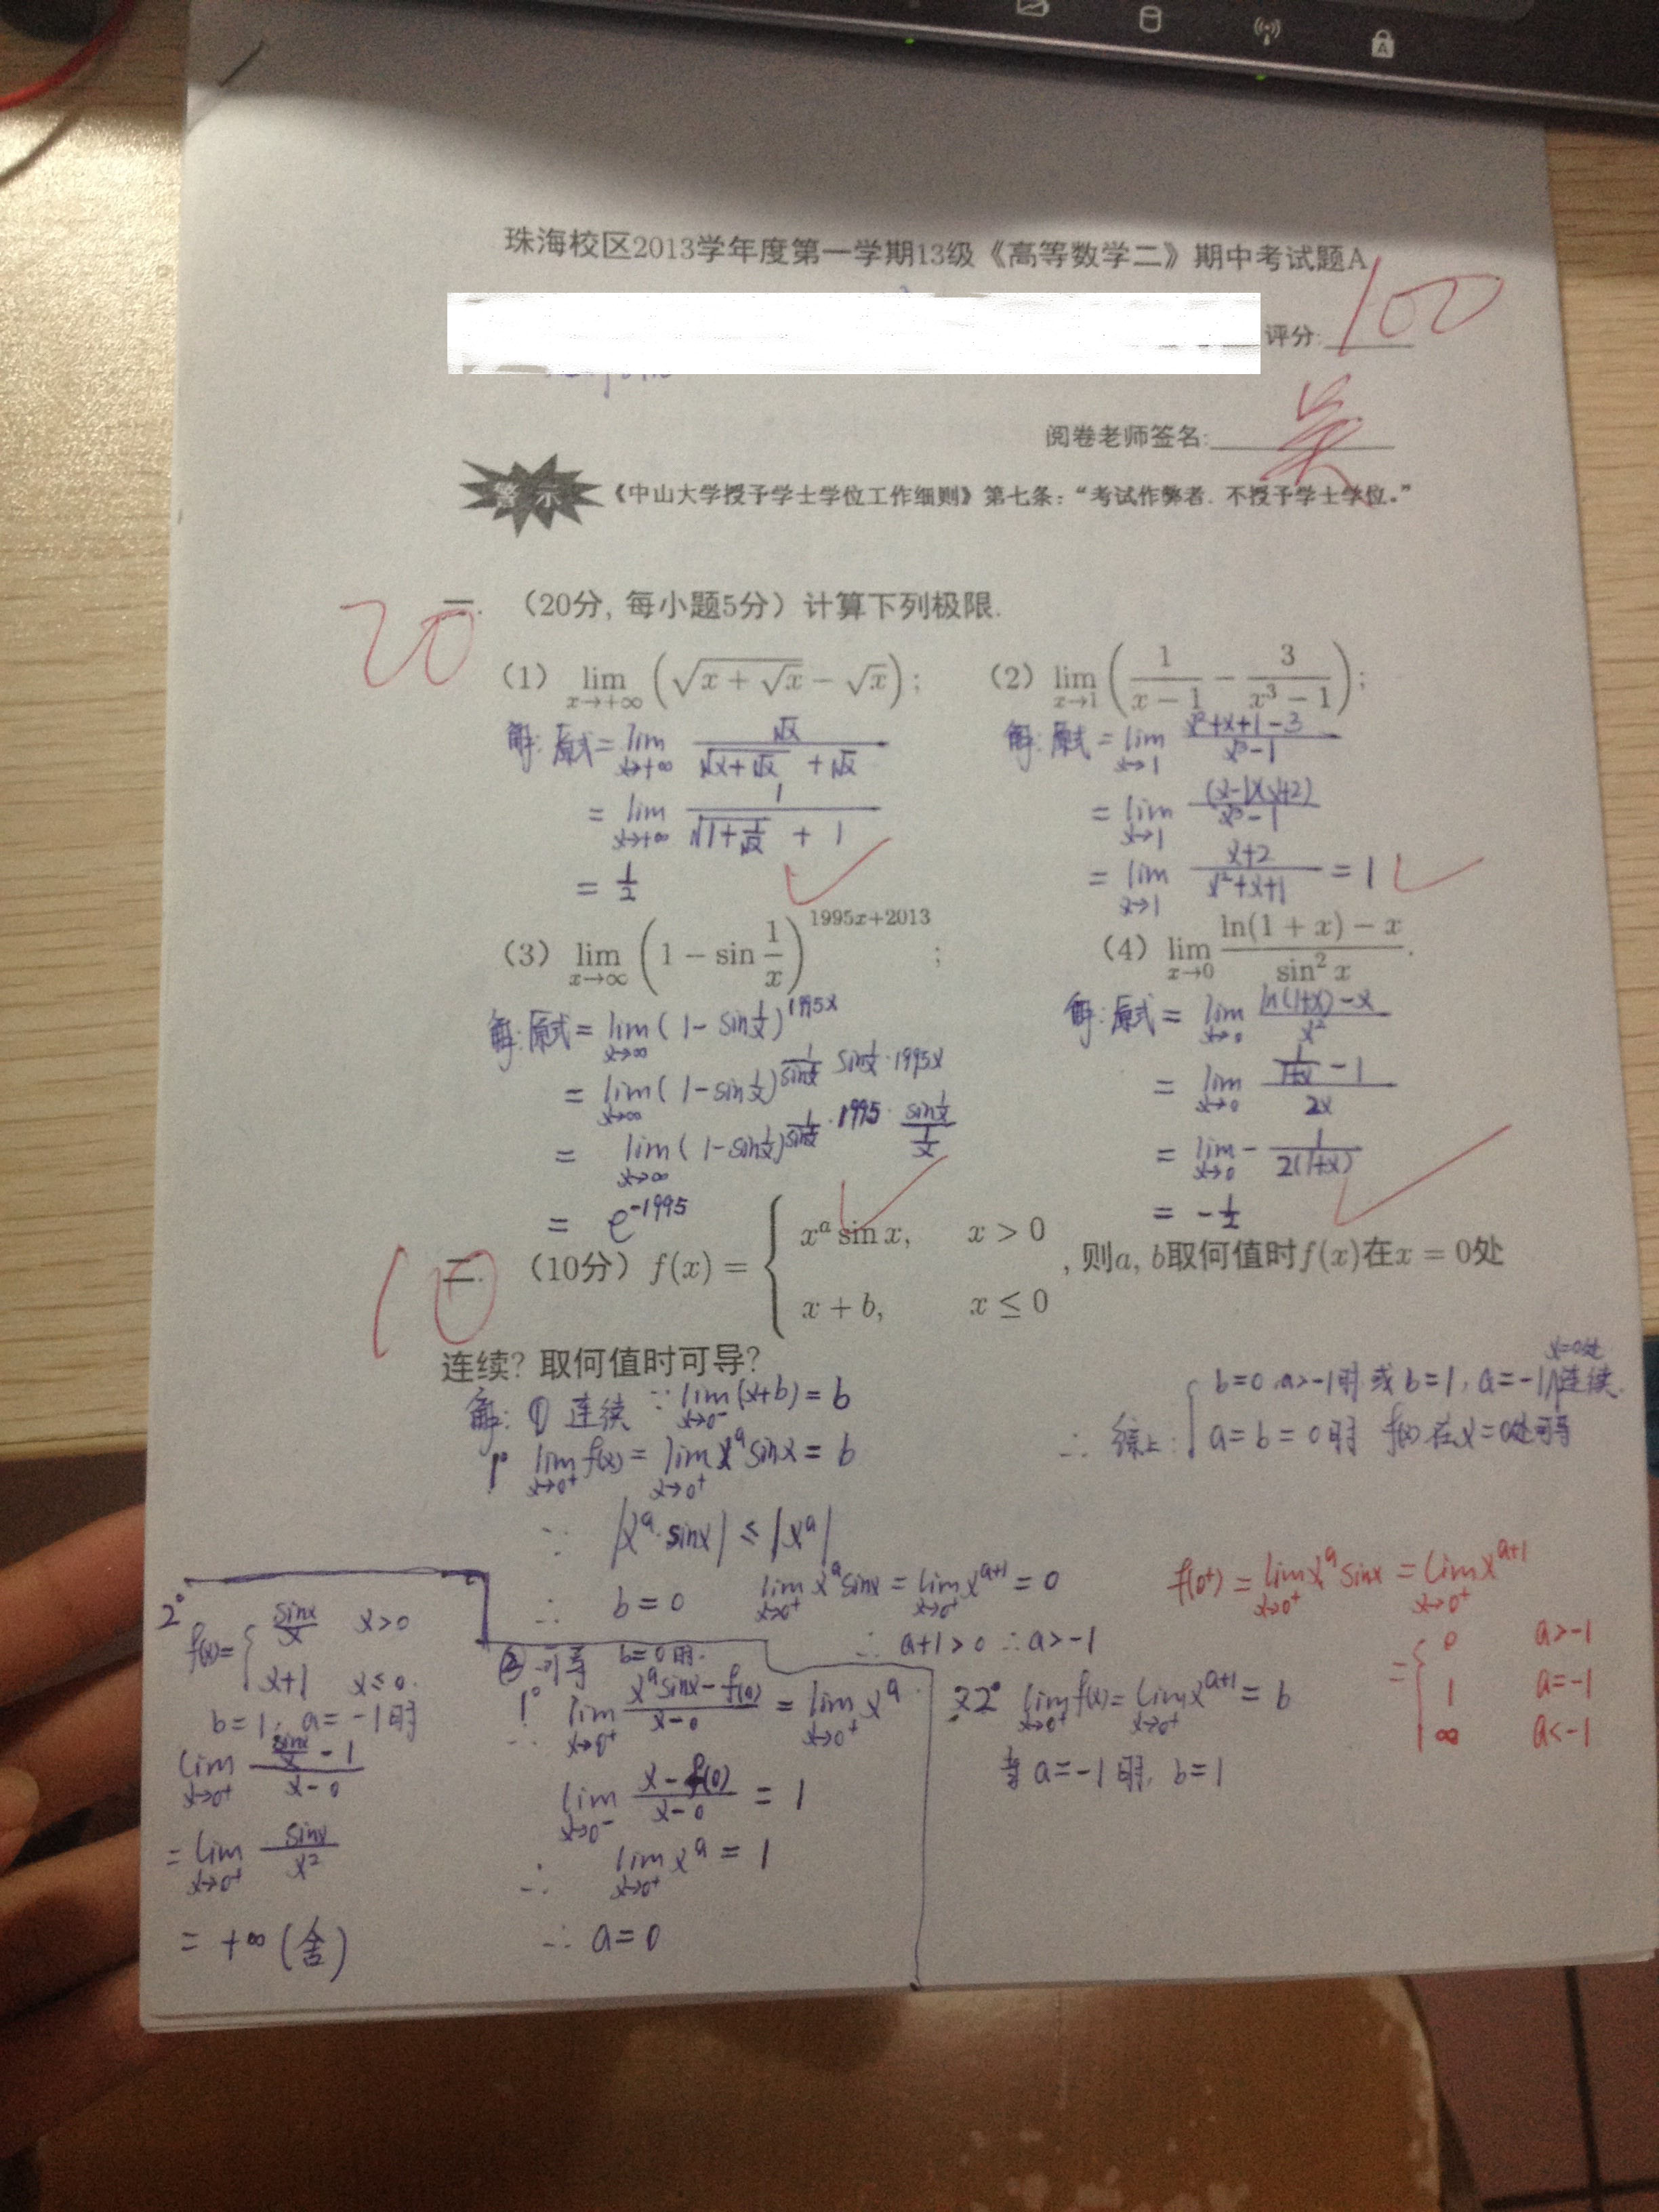 珠海校区2013学年度第一学期13级《高等数学二》期中考试题A
评分: 100
阅卷老师签名: 吴
警示 《中山大学授予学士学位工作细则》第七条：“考试作弊者. 不授予学士学位。”
20
一. （20分, 每小题5分）计算下列极限.
（1） lim x→+∞ (√(x + √x) − √x) ;
解: 原式 = lim x→+∞ √x / (√(x+√x) + √x)
= lim x→+∞ 1 / (√(1+1/√x) + 1)
= 1/2
（2） lim x→1 (1/(x − 1) − 3/(x³ − 1)) ;
解: 原式 = lim x→1 (x²+x+1−3)/(x³−1)
= lim x→1 (x−1)(x+2)/(x³−1)
= lim x→1 (x+2)/(x²+x+1) = 1
（3） lim x→∞ (1 − sin 1/x)^(1995x+2013) ;
解: 原式 = lim x→∞ (1 − sin 1/x)^(1995x)
= lim x→∞ (1−sin 1/x)^(1/(sin 1/x) · sin 1/x · 1995x)
= lim x→∞ (1−sin 1/x)^(1/(sin 1/x) · 1995 · (sin 1/x)/(1/x))
= e^(−1995)
（4） lim x→0 (ln(1 + x) − x)/sin² x .
解: 原式 = lim x→0 (ln(1+x) − x)/x²
= lim x→0 (1/(1+x) − 1)/2x
= lim x→0 − 1/(2(1+x))
= −1/2
10
二. （10分）f(x) = { x^a sin x, x > 0
x + b, x ≤ 0
, 则a, b取何值时f(x)在x = 0处
连续? 取何值时可导?
解: ① 连续 ∵ lim x→0⁻ (x+b) = b
1° lim x→0⁺ f(x) = lim x→0⁺ x^a sinx = b
∵ |x^a · sinx| ≤ |x^a|
∴ b = 0 lim x→0⁺ x^a sinx = lim x→0⁺ x^(a+1) = 0
∴ a+1 > 0 ∴ a > −1
又2° lim x→0⁺ f(x) = lim x→0⁺ x^(a+1) = b
当 a = −1 时, b = 1
② 可导 b=0时.
1° lim x→0⁺ (x^a sinx − f(0))/(x−0) = lim x→0⁺ x^a
lim x→0⁻ (x − f(0))/(x−0) = 1
∴ lim x→0⁺ x^a = 1
∴ a = 0
2°
f(x) = { sinx/x x>0
x+1 x≤0.
b=1, a=−1时
lim x→0⁺ (sinx/x − 1)/(x−0)
= lim x→0⁺ sinx/x²
= +∞ (舍)
x=0处
∴ 综上: { b=0 a>−1时 或 b=1, a=−1时连续.
a = b = 0时 f(x)在x=0处可导
f(0⁺) = lim x→0⁺ x^a sinx = lim x→0⁺ x^(a+1)
= { 0 a>−1
1 a=−1
∞ a<−1